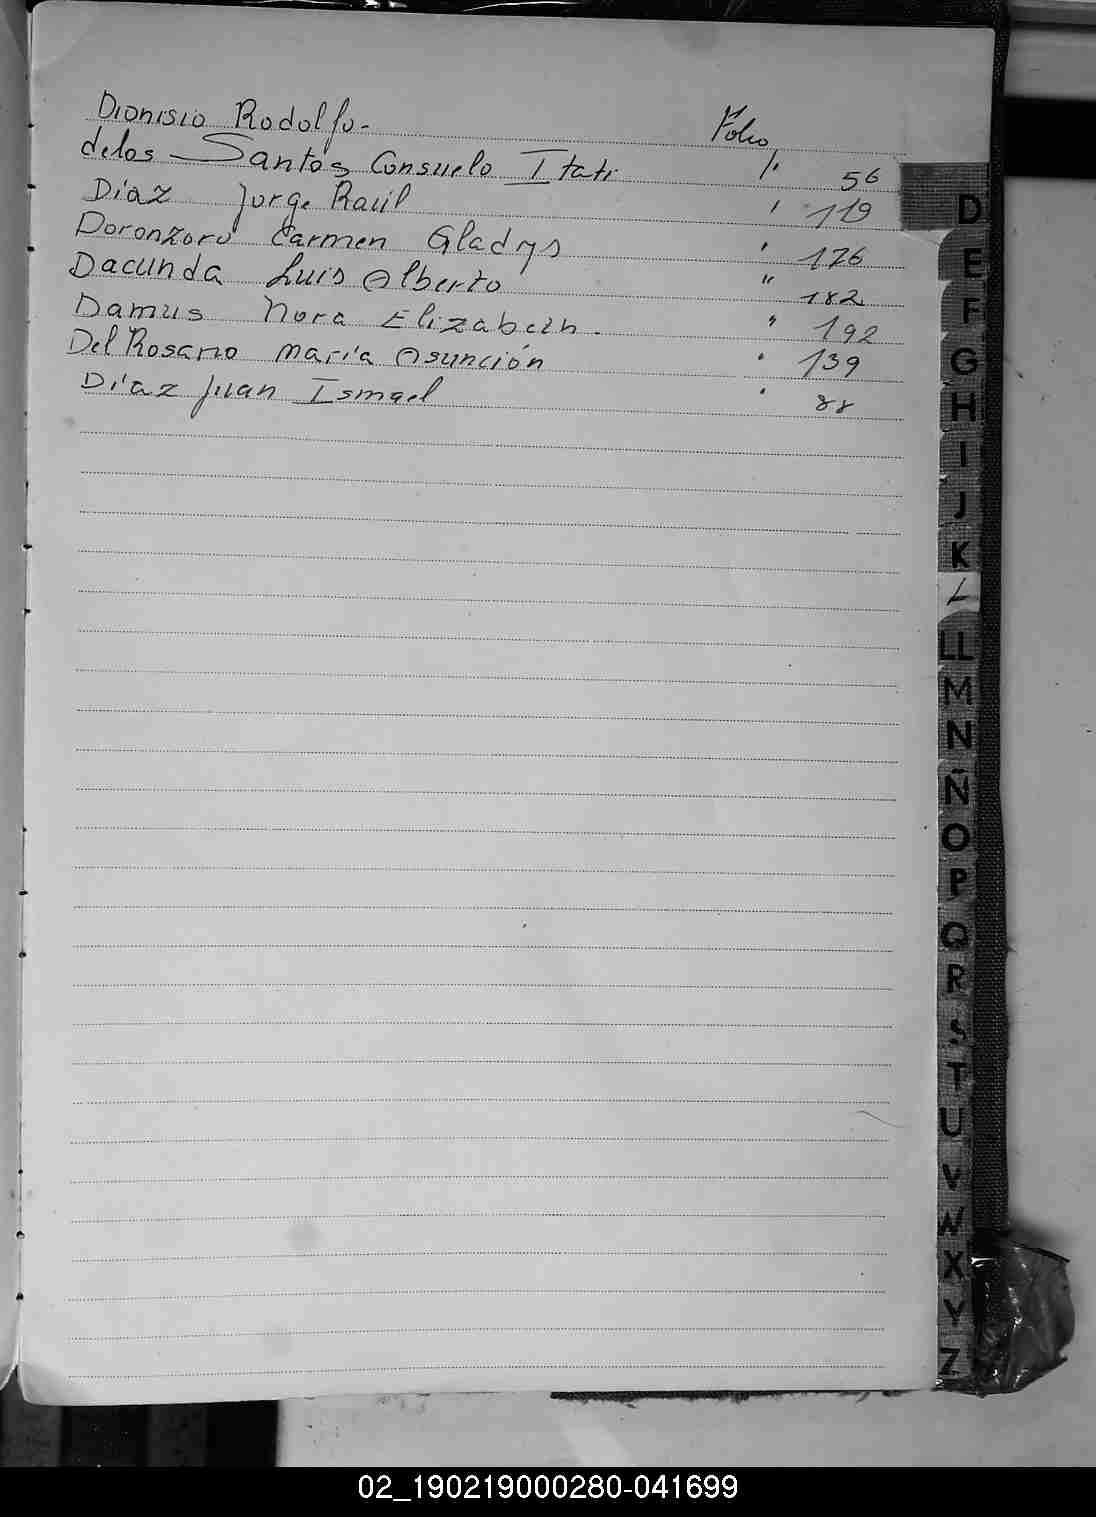 Dionisio Rodolfo - Folio
de los Santos Consuelo Itati " 56
Díaz Jorge Raúl " 119
Doronzoro Carmen Gladys " 126
Dacunda Luis Alberto " 182
Damus Nora Elizabeth. " 192
Del Rosario María Asunción " 139
Díaz Juan Ismael " 88
D
E
F
G
H
I
J
K
L
LL
M
N
Ñ
O
P
Q
R
S
T
U
V
W
X
Y
Z
02_190219000280-041699